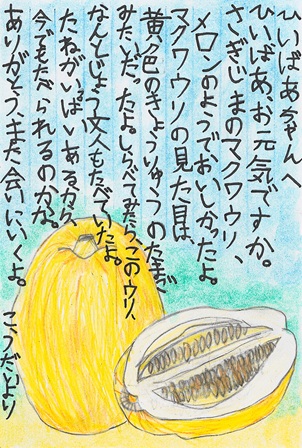 ひいばあちゃんへ
ひいばあ、お元気ですか。
さぎじまのマクワウリ、
メロンのようでおいしかったよ。
マクワウリの見た目は、
黄色のきょうりゅうのたまご
みたいだったよ。しらべてみたら、このウリ、
なんとじょう文人もたべていたよ。
たねがいっぱいあるから、
今でもたべられるのかな。
ありがとう、また会いにいくよ。
こうだいより